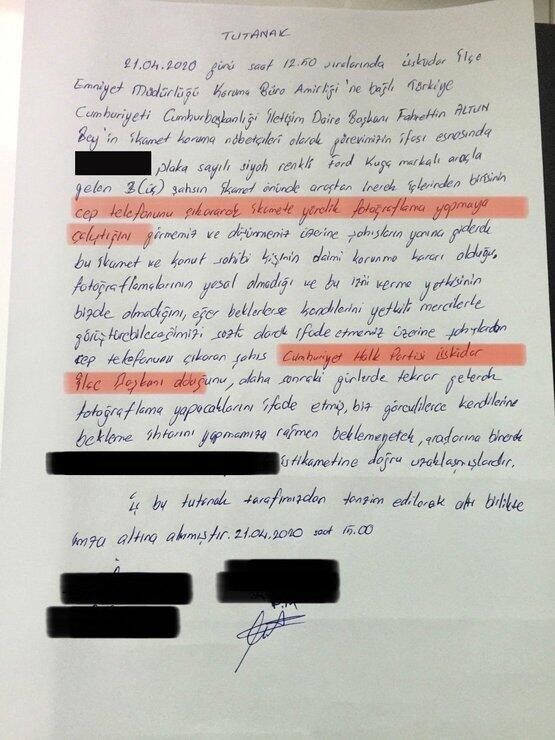 TUTANAK
21.04.2020 günü saat 12.50 sıralarında üsküdar ilçe
Emniyet Müdürlüğü Koruma Büro Amirliği'ne bağlı Türkiye
Cumhuriyeti Cumhurbaşkanlığı İletişim Daire Başkanı Fahrettin ALTUN
Bey'in ikamet koruma nöbetçileri olarak görevimizin ifası esnasında
plaka sayılı siyah renkli Ford Kuga markalı araçla
gelen 3 (üç) şahsın ikamet önünde araçtan inerek içlerinden birisinin
cep telefonunu çıkararak ikamete yönelik fotoğraflama yapmaya
çalıştığını görmemiz ve düşünmemiz üzerine şahısların yanına giderek
bu ikamet ve konut sahibi kişinin daimi korunma kararı olduğu,
fotoğraflamalarının yasal olmadığı ve bu izni verme yetkisinin
bizde olmadığını, eğer beklerlerse kendilerini yetkili mercilerle
görüştürebileceğimizi sözlü olarak ifade etmemiz üzerine şahıslardan
cep telefonunu çıkaran şahıs Cumhuriyet Halk Partisi üsküdar
ilçe Başkanı olduğunu, daha sonraki günlerde tekrar gelerek
fotoğraflama yapacaklarını ifade etmiş, biz görevlilerce kendilerine
bekleme ihtarını yapmamıza rağmen beklemeyerek, araçlarına binerek
istikametine doğru uzaklaşmışlardır.
iş bu tutanak tarafımızdan tanzim edilerek altı birlikte
imza altına alınmıştır. 21.04.2020 saat 15.00